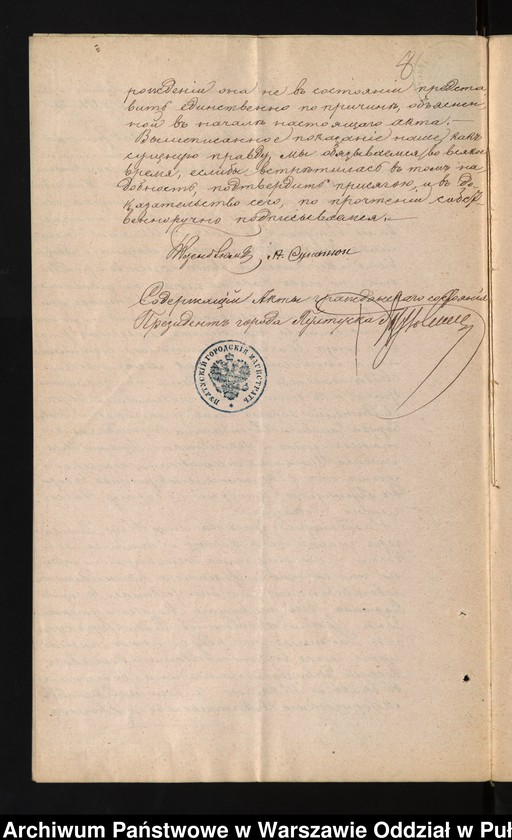 8
рожденіи она не въ состояніи предста
вить единственно по причинѣ, объяснен
ной въ началѣ настоящаго акта.—
Вышеписанное показаніе наше какъ
сущую правду, мы обязываемся во всякое
время, еслибы встрѣтилась въ томъ на
добность, подтвердить присягою, и въ до
казательство сего, по прочтеніи собст
венноручно подписываемся.—
Содержащій Акты гражданскаго состоянія
Президентъ города Пултуска
ПУЛТУСКІЙ ГОРОДСКІЙ МАГИСТРАТЪ
Archiwum Państwowe w Warszawie Oddział w Puł